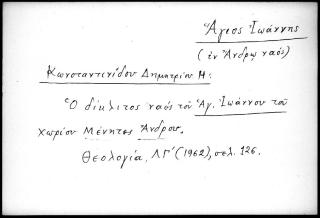 Ἅγιος Ἰωάννης
(ἐν Ἄνδρῳ ναός)
Κωνσταντινίδου Δημητρίου Η:
Ὁ δίκλιτος ναὸς τοῦ Ἁγ. Ἰωάννου τοῦ
χωρίου Μένητες Ἄνδρου.
Θεολογία, ΛΓ' (1962), σελ. 126.